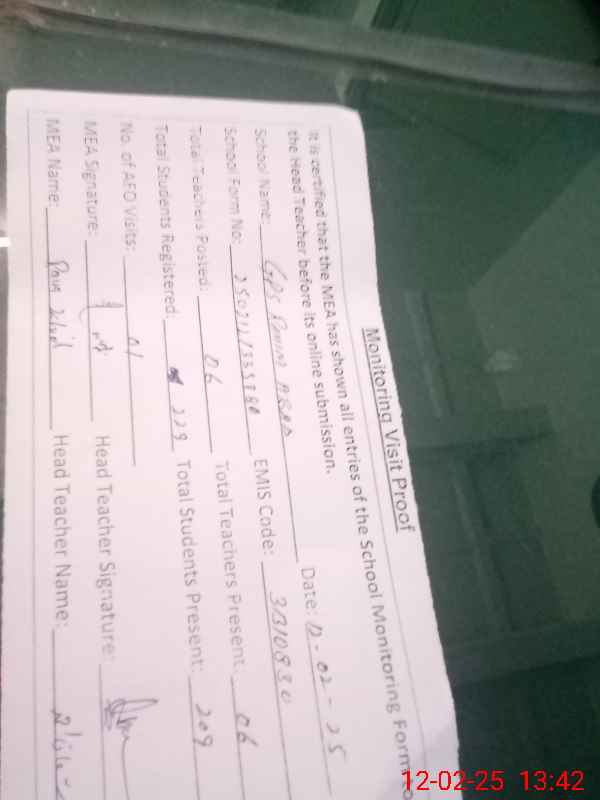 Monitoring Visit Proof
It is certified that the MEA has shown all entries of the School Monitoring Form to
the Head Teacher before its online submission.
Date: 12-02-25
School Name: GPS
School Form No: EMIS Code: 31310830
Total Teachers Posted: 06 Total Teachers Present: 06
Total Students Registered: 229 Total Students Present: 209
No. of AEO Visits: 01
MEA Signature: Head Teacher Signature:
MEA Name: Head Teacher Name:
12-02-25 13:42